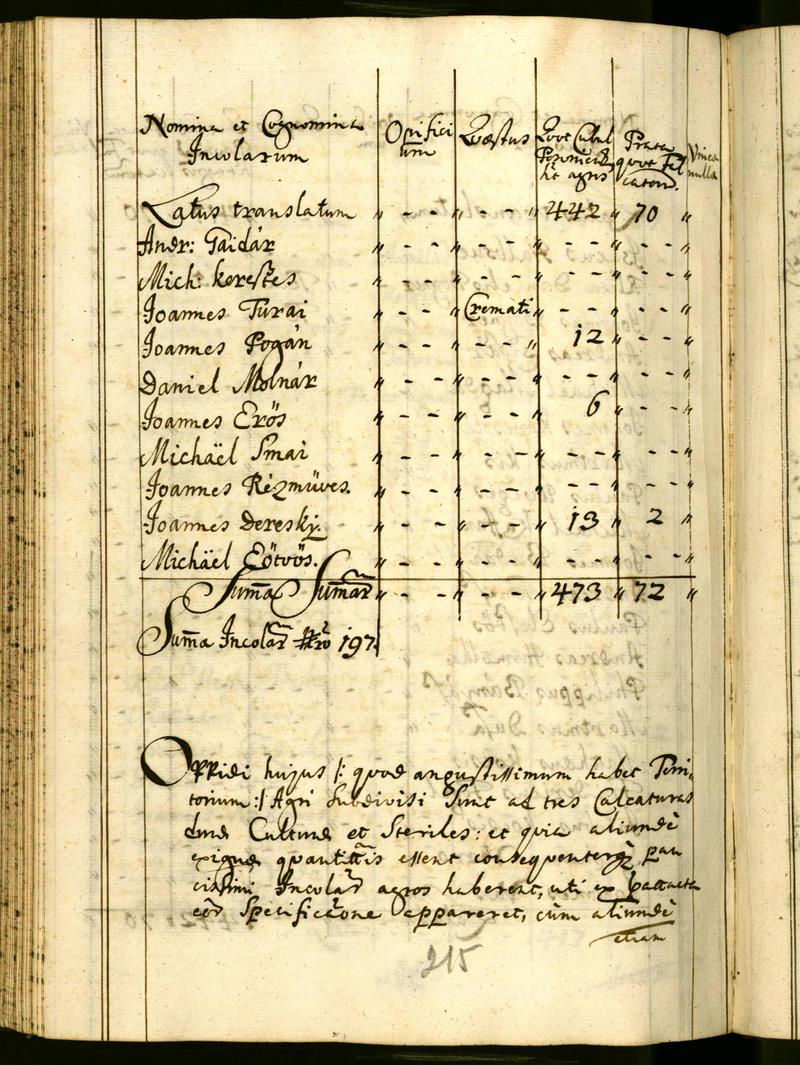 Nomina et Cognomina Incolarum
Opificium
Quæstus
Quot Cubul Posoniens hic agros
Prata quot Falcator.
Vinea nulla
Latus translatum " - - " - - " 442 " 70 "
Andr: Gaidár " - - " - - " - - " - - "
Mich: kerestes " - - " - - " - - " - - "
Joannes Turai " - - " Cremati " - - " - - "
Joannes Pogán " - - " - - " 12 " - - "
Daniel Molnár " - - " - - " - - " - - "
Joannes Erös " - - " - - " 6 " - - "
Michäel Smai " - - " - - " - - " - - "
Joannes Rézmüves. " - - " - - " - - " - - "
Joannes Deresky. " - - " - - " 13 " 2 "
Michäel Eötvös. " - - " - - " - - " - - "
Summa Sumar " - - " - - " 473 " 72 "
Suma Incolar Nro 197.
Oppidi hujus /: quod angustissimum habet Terri,
torium :/ Agri Subdivisi Sunt ad tres Calcaturas
duræ Culturæ et Steriles: et quia aliunde
exiguæ quantittis essent consequenterq pau
cissimi Incolar agros haberent, uti ex
eor Specificone appareret, cùm aliunde
etiam
215